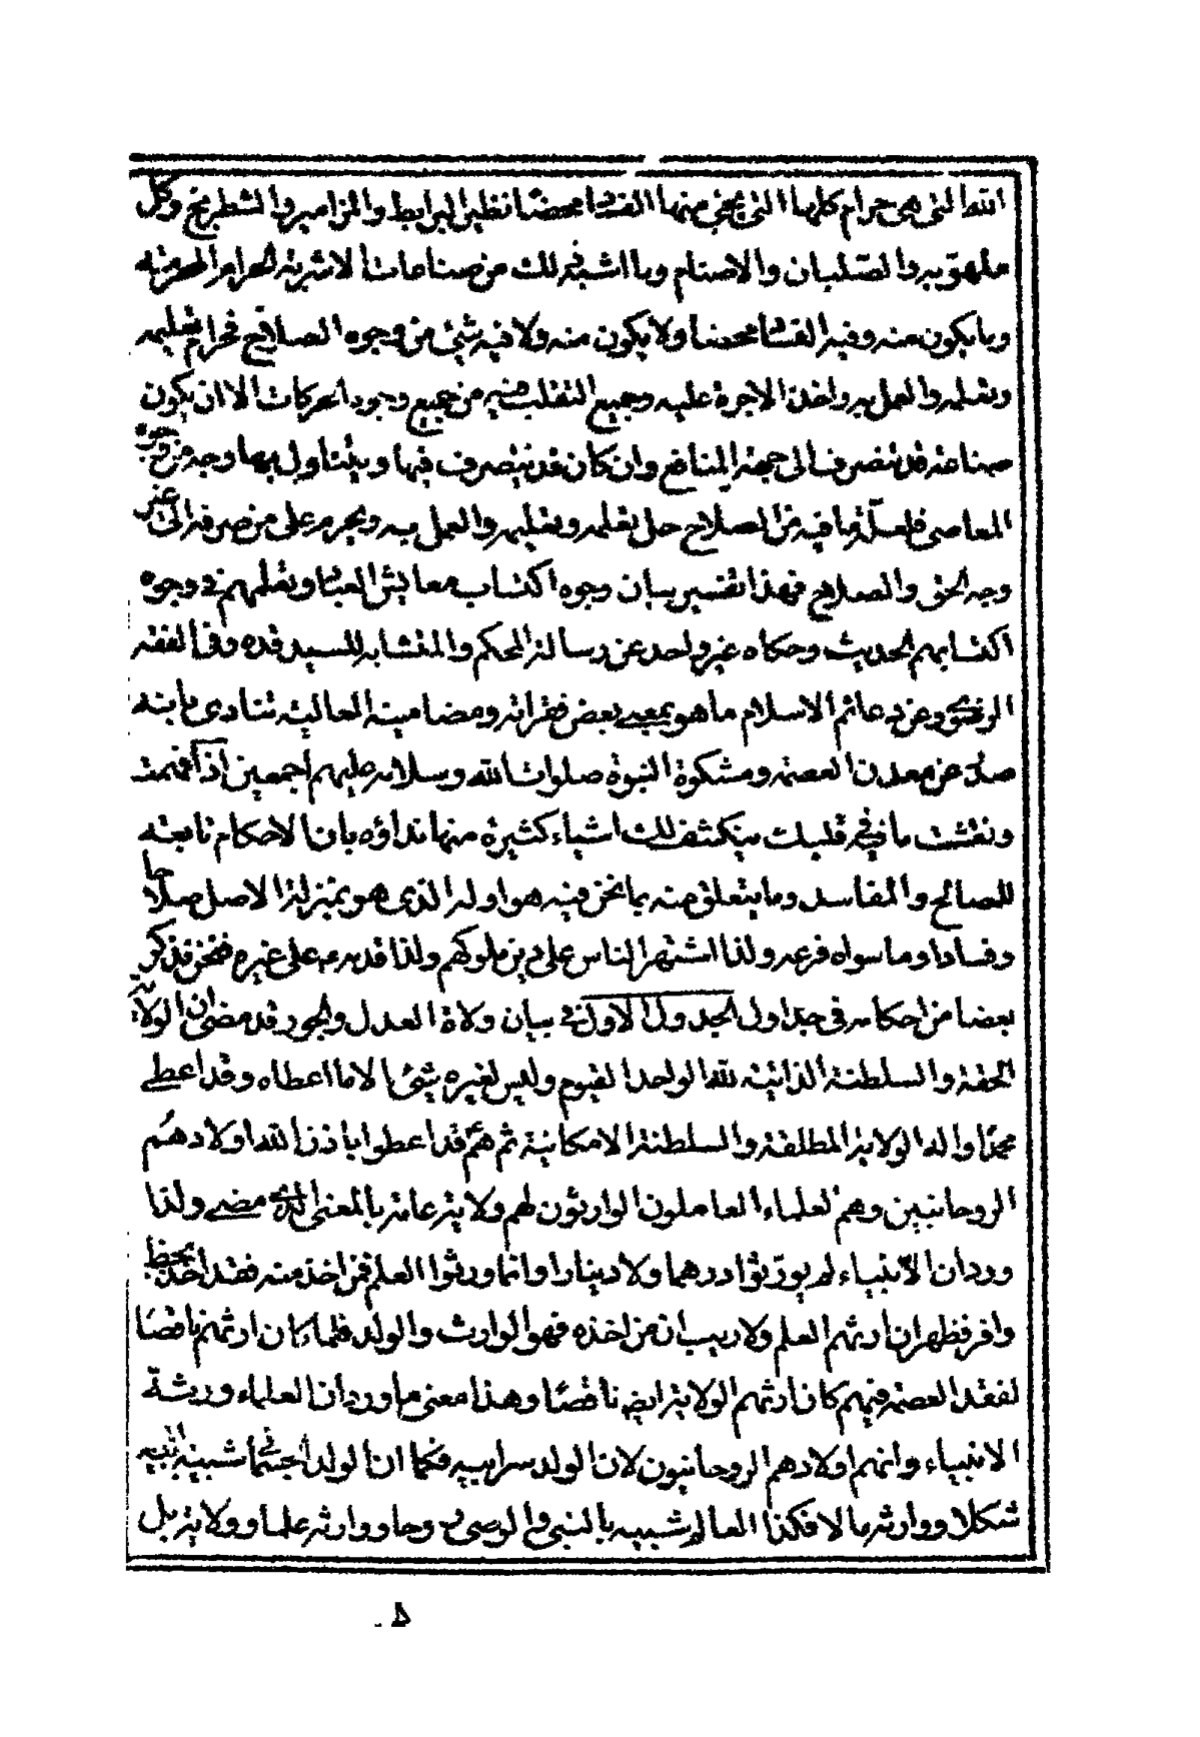 الله التى هى حرام كلها التى يجئ منها الفساد محضا نظير البرابط والمزامير والشطرنج وكل
ملهو به والصلبان والاصنام وما اشبه ذلك من صناعات الاشربة الحرام المحرمة
وما يكون منه وفيه الفساد محضا ولا يكون منه ولا فيه شئ من وجوه الصلاح فحرام تعليمه
وتعلمه والعمل به واخذ الاجرة عليه وجميع التقلب فيه من جميع وجوه الحركات الا ان يكون
صناعة قد تنصرف الى جهة المنافع وان كان قد يتصرف فيها ويتناول بها وجه من وجوه
المعاصى فلعلة ما فيه من الصلاح حل تعلمه وتعليمه والعمل به ويحرم على من صرفه الى غير
وجه الحق والصلاح فهذا تفسير بيان وجوه اكتساب معايش العباد وتعلمهم فى وجوه
اكتسابهم الحديث وحكاه غير واحد عن رسالة المحكم والمتشابه للسيد قده وفى الفقه
الرضوى وعن دعائم الاسلام ما هو بمعنى بعض فقراته ومضامينه العالية تنادى بانه
صدر عن معدن العصمة ومشكوة النبوة صلوات الله وسلامه عليهم اجمعين اذا فهمت
ونقشت ما فى قلبك ينكشف لك اشياء كثيرة منها نداؤه بان الاحكام تابعة
للمصالح والمفاسد وما يتعلق منه بما نحن فيه هو اوله الذى هو بمنزلة الاصل صلاحا
وفسادا وما سواه فرعه ولذا اشتهر الناس على دين ملوكهم ولذا قدمه على غيره فنحن نذكر
بعضا من احكامه فى جداول الجدول الاول فى بيان ولاة العدل والجور قد مضى ان الولاية
الحقة والسلطنة الذاتية لله الواحد القيوم وليس لغيره شئ الا ما اعطاه وقد اعطى
محمدا واله الولاية المطلقة والسلطنة الامكانية ثم هم قد اعطوا باذن الله اولادهم
الروحانيين وهم العلماء العاملون الوارثون لهم ولاية عامة بالمعنى الذى مضى ولذا
ورد ان الانبياء لم يورثوا درهما ولا دينارا وانما ورثوا العلم فمن اخذ منه فقد اخذ بحظ
وافر فظهر ان ارثهم العلم ولا ريب ان من اخذه فهو الوارث والولد فلما كان ارثهم ناقصا
لفقد العصمة فيهم كان ارثهم الولاية ايض ناقصا وهذا معنى ما ورد ان العلماء ورثة
الانبياء وانهم اولادهم الروحانيون لان الولد سر ابيه فكما ان الولد الجسمانى شبيه ابيه
شكلا ووارثه مالا فكذا العالم شبيه بالنبى والوصى روحا ووارثه علما وولاية بل